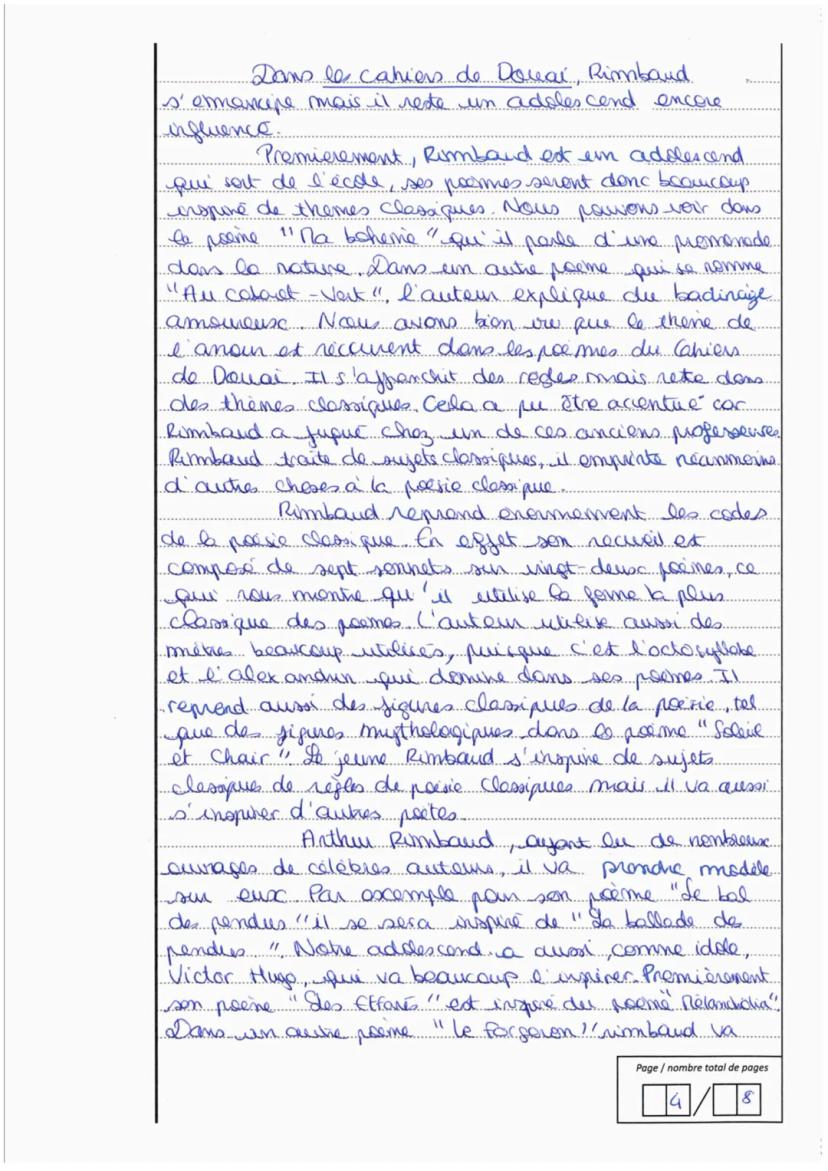 Dans les cahiers de Douai, Rimbaud
s'emancipe mais il reste un adolescend encore
influencé.
Premierement, Rimbaud est un adolescend
qui sort de l'école, ses poèmes seront donc beaucoup
inspiré de themes classiques. Nous pouvons voir dans
le poème "Ma boheme" qu'il parle d'une promenade
dans la nature. Dans un autre poème qui se nomme
"Au cabaret-Vert", l'auteur explique du badinage
amoureux. Nous avons bien vu que le thème de
l'amour est réccurent dans les poèmes du Cahiers
de Douai. Il s'affranchit des regles mais reste dans
des thèmes classiques. Cela a pu être accentué car
Rimbaud a fugué chez un de ces anciens professeurs.
Rimbaud traite de sujets classiques, il emprunte néanmoins
d'autres choses à la poésie classique.
Rimbaud reprend enormement les codes
de la poésie classique. En effet son recueil est
composé de sept sonnets sur vingt-deux poèmes, ce
qui nous montre qu'il utilise la forme la plus
classique des poemes. L'auteur utilise aussi des
mètres beaucoup utilisés, puisque c'est l'octosyllabe
et l'alexandrin qui domine dans ses poèmes. Il
reprend aussi des figures classiques de la poésie, tel
que des figures mythologiques dans le poème "Soleil
et Chair". Le jeune Rimbaud s'inspire de sujets
classiques de règles de poésie classiques mais il va aussi
s'inspirer d'autres poètes.
Arthur Rimbaud, ayant lu de nombreux
ouvrages de célèbres auteurs, il va prendre modèle
sur eux. Par excemple pour son poème "Le bal
des pendus" il se sera inspiré de "La ballade des
pendus". Notre adolescend a aussi, comme idole,
Victor Hugo, qui va beaucoup l'inspirer. Premièrement
son poème "Les Effarés" est inspiré du poème "Melancholia".
Dans un autre poème "le forgeron" rimbaud va
Page / nombre total de pages
4 / 8